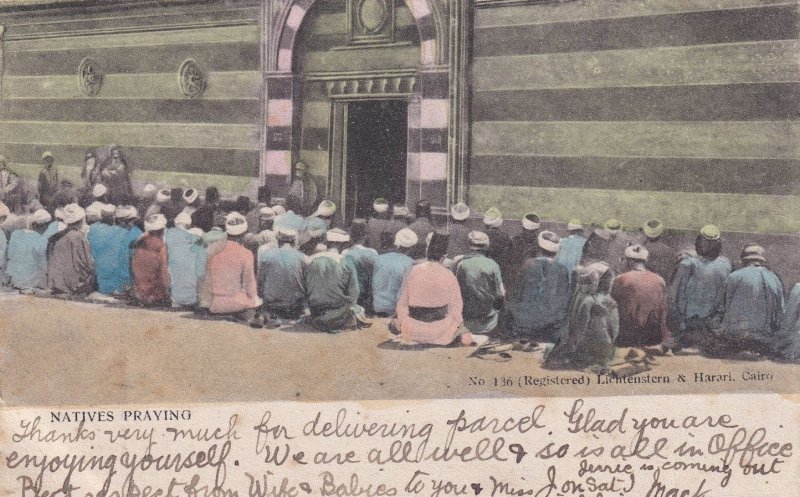 No 136 (Registered) Lichtenstern & Harari, Cairo
NATIVES PRAYING
Thanks very much for delivering parcel. Glad you are
enjoying yourself. We are all well & so is all in Office
Jerrie is coming out
Best respect from Wife & Babies to you & Miss J on Sat.) Mack